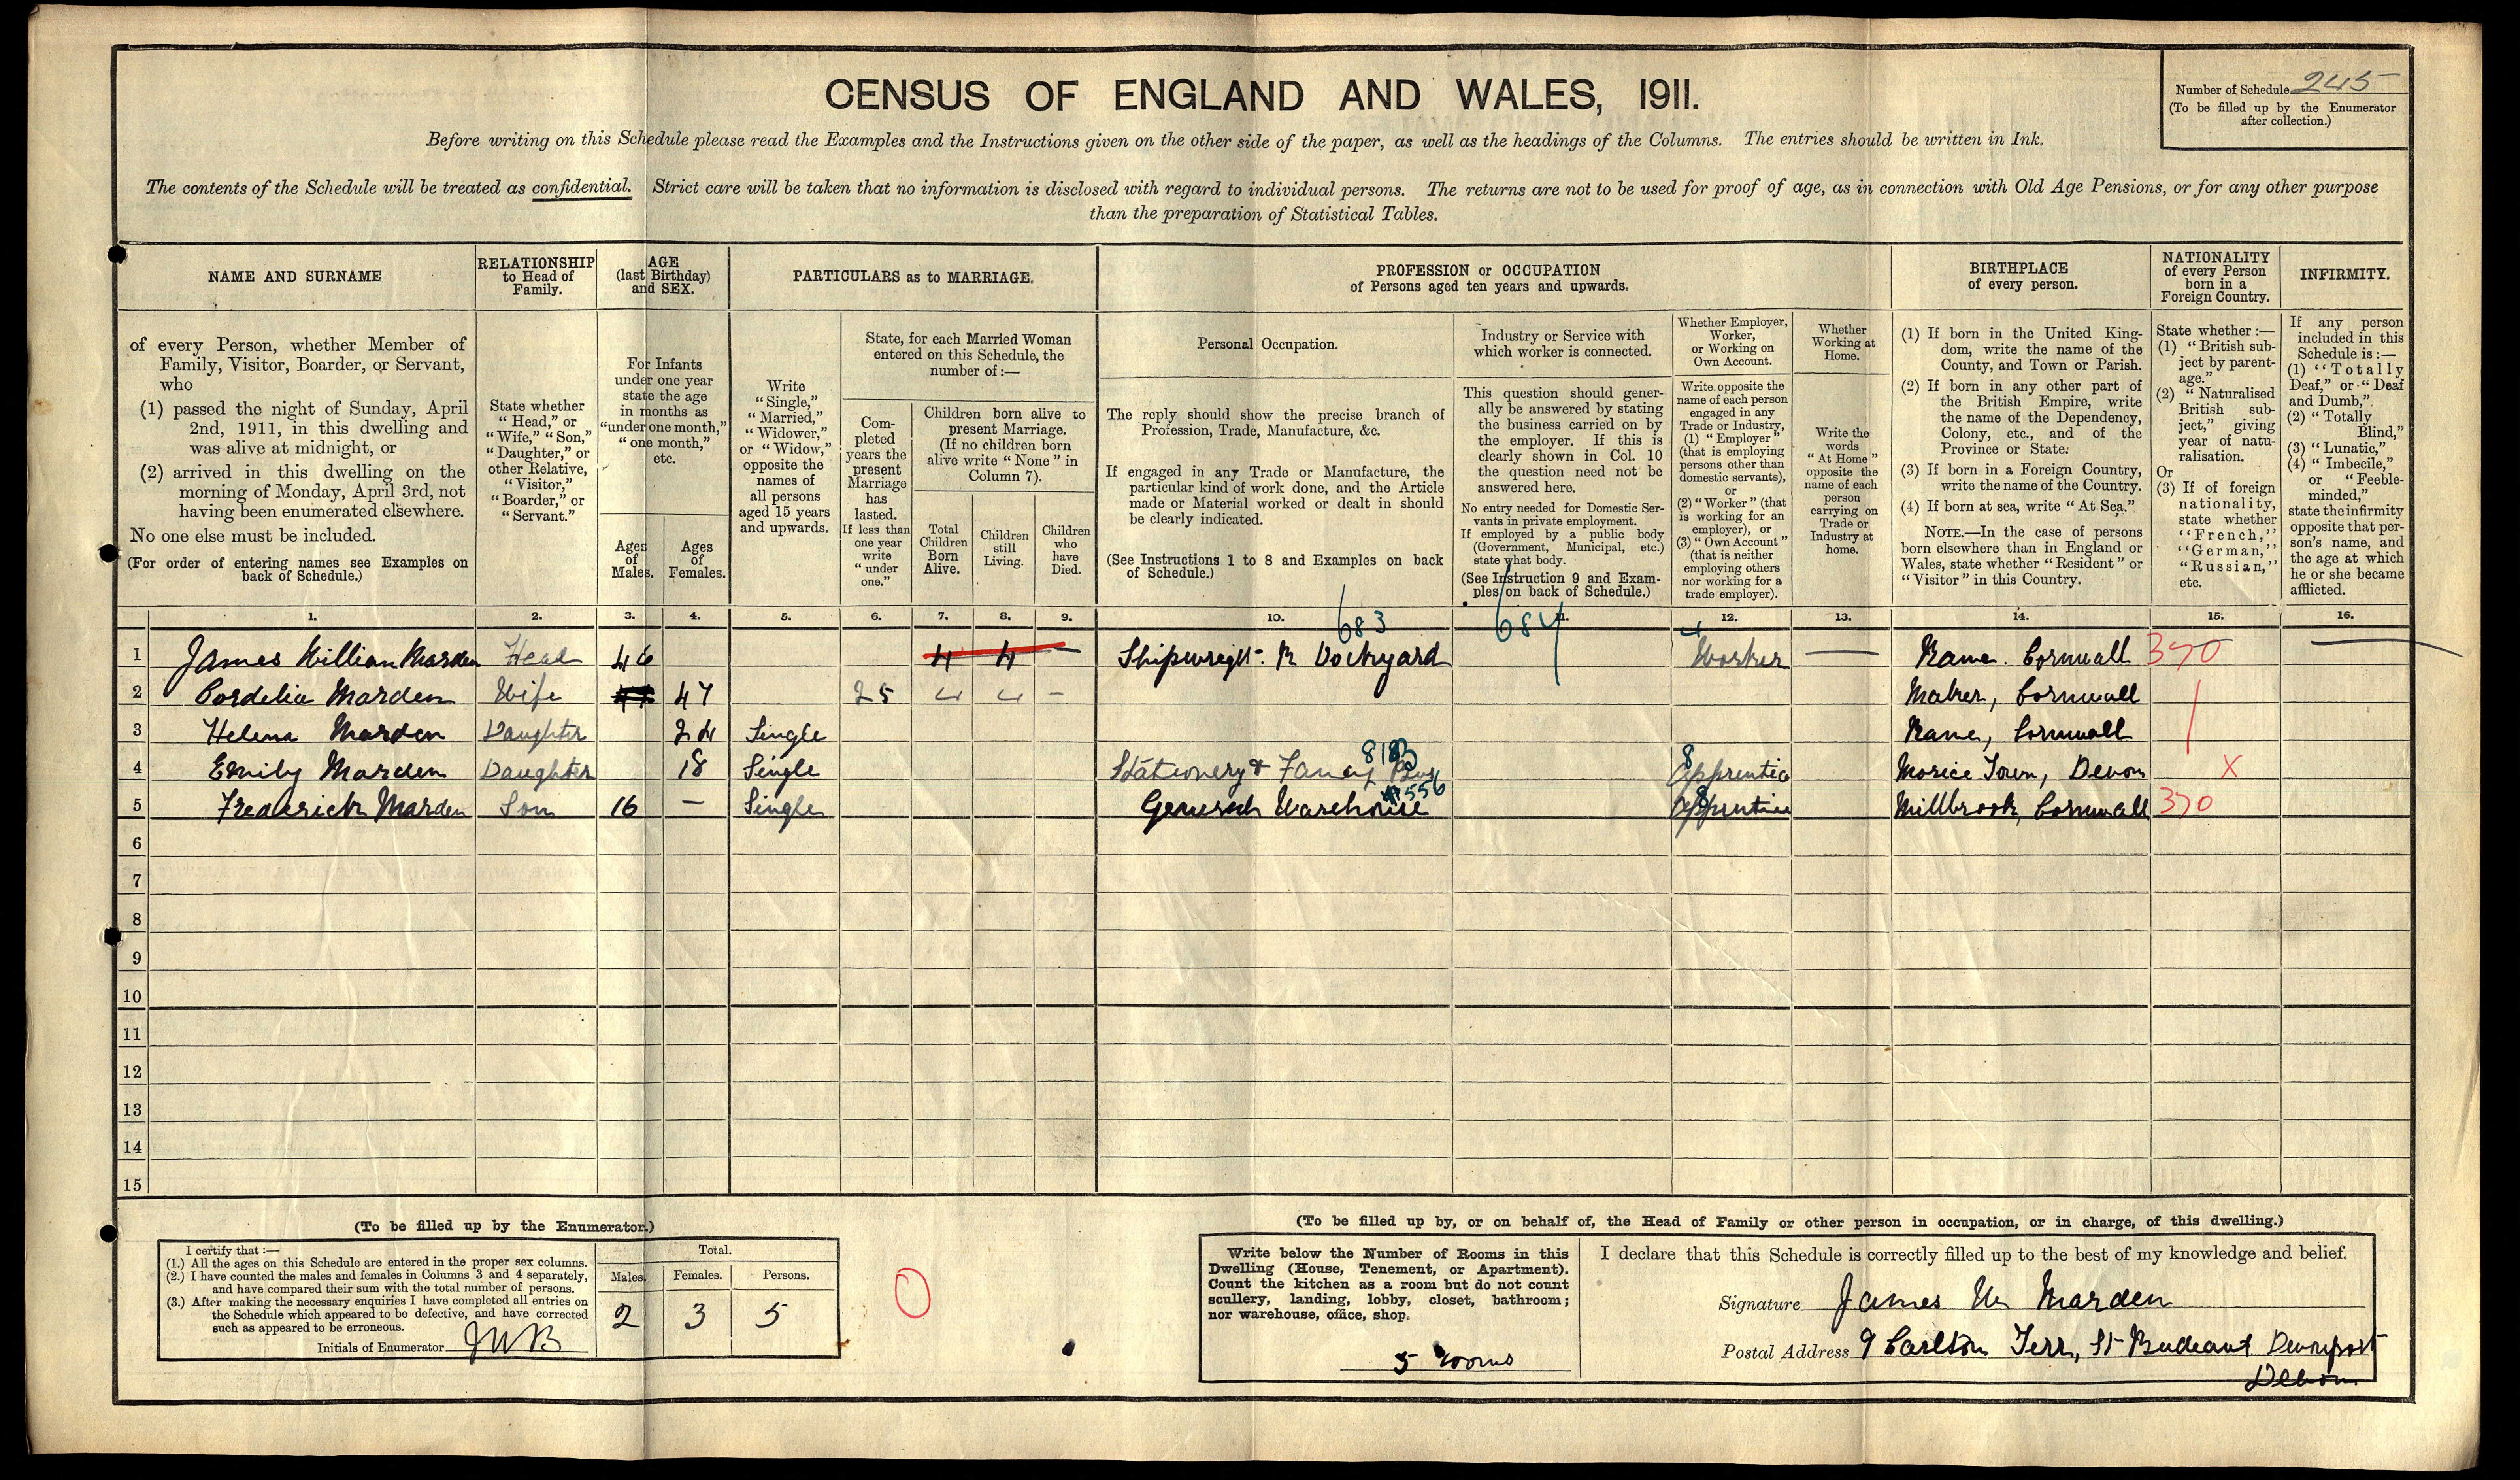 CENSUS OF ENGLAND AND WALES, 1911.
Number of Schedule 245
(To be filled up by the Enumerator
after collection.)
Before writing on this Schedule please read the Examples and the Instructions given on the other side of the paper, as well as the headings of the Columns. The entries should be written in Ink.
The contents of the Schedule will be treated as confidential. Strict care will be taken that no information is disclosed with regard to individual persons. The returns are not to be used for proof of age, as in connection with Old Age Pensions, or for any other purpose
than the preparation of Statistical Tables.
NAME AND SURNAME
of every Person, whether Member of
Family, Visitor, Boarder, or Servant,
who
(1) passed the night of Sunday, April
2nd, 1911, in this dwelling and
was alive at midnight, or
(2) arrived in this dwelling on the
morning of Monday, April 3rd, not
having been enumerated elsewhere.
No one else must be included.
(For order of entering names see Examples on
back of Schedule.)
RELATIONSHIP
to Head of
Family.
State whether
"Head," or
"Wife," "Son,"
"Daughter," or
other Relative,
"Visitor,"
"Boarder," or
"Servant."
AGE
(last Birthday)
and SEX.
For Infants
under one year
state the age
in months as
"under one month,"
"one month,"
etc.
Ages
of
Males.
Ages
of
Females.
PARTICULARS as to MARRIAGE.
Write
"Single,"
"Married,"
"Widower,"
or "Widow,"
opposite the
names of
all persons
aged 15 years
and upwards.
State, for each Married Woman
entered on this Schedule, the
number of :—
Com-
pleted
years the
present
Marriage
has
lasted.
If less than
one year
write
"under
one."
Children born alive to
present Marriage.
(If no children born
alive write "None" in
Column 7).
Total
Children
Born
Alive.
Children
still
Living.
Children
who
have
Died.
PROFESSION or OCCUPATION
of Persons aged ten years and upwards.
Personal Occupation.
The reply should show the precise branch of
Profession, Trade, Manufacture, &c.
If engaged in any Trade or Manufacture, the
particular kind of work done, and the Article
made or Material worked or dealt in should
be clearly indicated.
(See Instructions 1 to 8 and Examples on back
of Schedule.)
Industry or Service with
which worker is connected.
This question should gener-
ally be answered by stating
the business carried on by
the employer. If this is
clearly shown in Col. 10
the question need not be
answered here.
No entry needed for Domestic Ser-
vants in private employment.
If employed by a public body
(Government, Municipal, etc.)
state what body.
(See Instruction 9 and Exam-
ples on back of Schedule.)
Whether Employer,
Worker,
or Working on
Own Account.
Write opposite the
name of each person
engaged in any
Trade or Industry,
(1) "Employer"
(that is employing
persons other than
domestic servants),
or
(2) "Worker" (that
is working for an
employer), or
(3) "Own Account"
(that is neither
employing others
nor working for a
trade employer).
Whether
Working at
Home.
Write the
words
"At Home"
opposite the
name of each
person
carrying on
Trade or
Industry at
home.
BIRTHPLACE
of every person.
(1) If born in the United King-
dom, write the name of the
County, and Town or Parish.
(2) If born in any other part of
the British Empire, write
the name of the Dependency,
Colony, etc., and of the
Province or State.
(3) If born in a Foreign Country,
write the name of the Country.
(4) If born at sea, write "At Sea."
NOTE.—In the case of persons
born elsewhere than in England or
Wales, state whether "Resident" or
"Visitor" in this Country.
NATIONALITY
of every Person
born in a
Foreign Country.
State whether :—
(1) "British sub-
ject by parent-
age."
(2) "Naturalised
British sub-
ject," giving
year of natu-
ralisation.
Or
(3) If of foreign
nationality,
state whether
"French,"
"German,"
"Russian,"
etc.
INFIRMITY.
If any person
included in this
Schedule is :—
(1) "Totally
Deaf," or "Deaf
and Dumb,"
(2) "Totally
Blind,"
(3) "Lunatic,"
(4) "Imbecile,"
or "Feeble-
minded,"
state the infirmity
opposite that per-
son's name, and
the age at which
he or she became
afflicted.
1. 2. 3. 4. 5. 6. 7. 8. 9. 10. 11. 12. 13. 14. 15. 16.
683 684
1 James William Marden Head 46 4 4 — Shipwright. R Dockyard Worker — Rame. Cornwall 370 —
2 Cordelia Marden Wife 47 25 4 4 — Maker, Cornwall
3 Helena Marden Daughter 24 Single Rame, Cornwall
4 Emily Marden Daughter 18 Single Stationery & Fancy 8 Apprentice Morice Town, Devon X
556
5 Frederick Marden Son 16 — Single Warehouse 8 Apprentice Millbrook, Cornwall 370
6
7
8
9
10
11
12
13
14
15
(To be filled up by the Enumerator.)
I certify that :—
(1.) All the ages on this Schedule are entered in the proper sex columns.
(2.) I have counted the males and females in Columns 3 and 4 separately,
and have compared their sum with the total number of persons.
(3.) After making the necessary enquiries I have completed all entries on
the Schedule which appeared to be defective, and have corrected
such as appeared to be erroneous.
Initials of Enumerator JWB
Total.
Males. Females. Persons.
2 3 5
0
(To be filled up by, or on behalf of, the Head of Family or other person in occupation, or in charge, of this dwelling.)
Write below the Number of Rooms in this
Dwelling (House, Tenement, or Apartment).
Count the kitchen as a room but do not count
scullery, landing, lobby, closet, bathroom;
nor warehouse, office, shop.
5 rooms
I declare that this Schedule is correctly filled up to the best of my knowledge and belief.
Signature James Wm Marden
Postal Address 9 Carlton Terr, St Budeaux Devonport
Devon